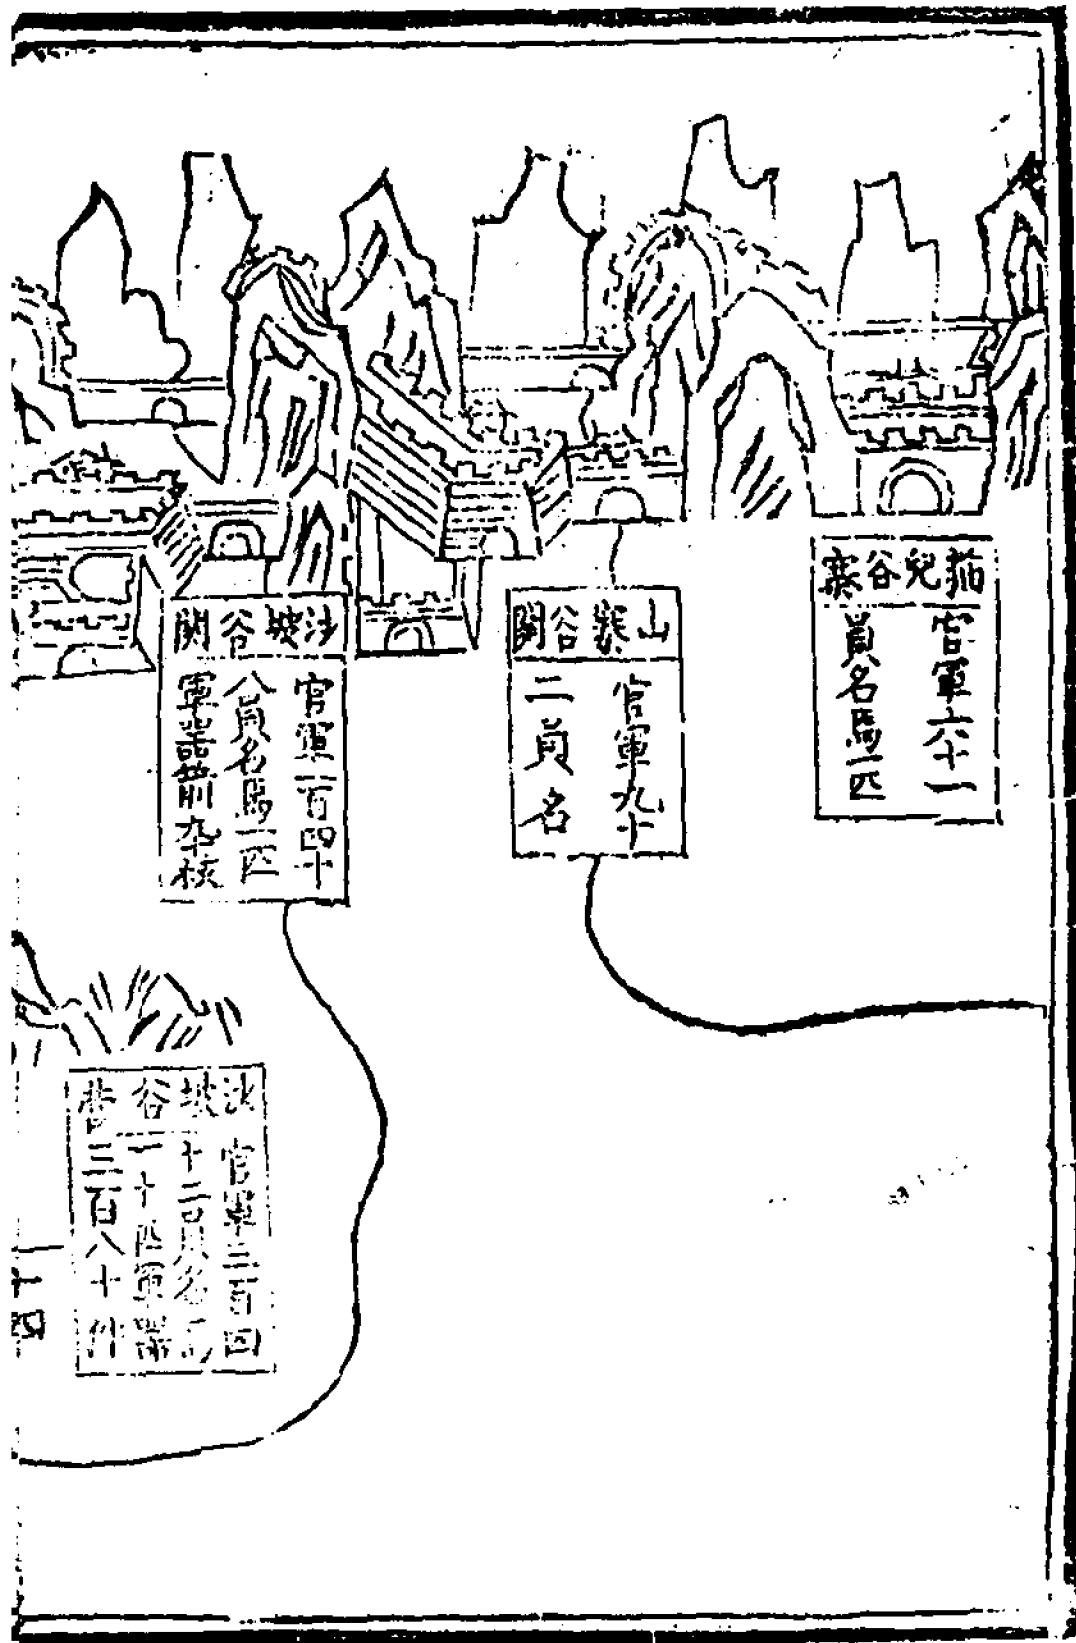 猫兒谷寨
官軍六十一
員名馬一匹
山寨谷關
官軍九十
二員名
沙坡谷關
官軍一百四十
八員名馬一匹
軍器箭九千枝
沙坡谷營
官軍三百四
十二員名馬
一十匹軍器
三百八十件
十四